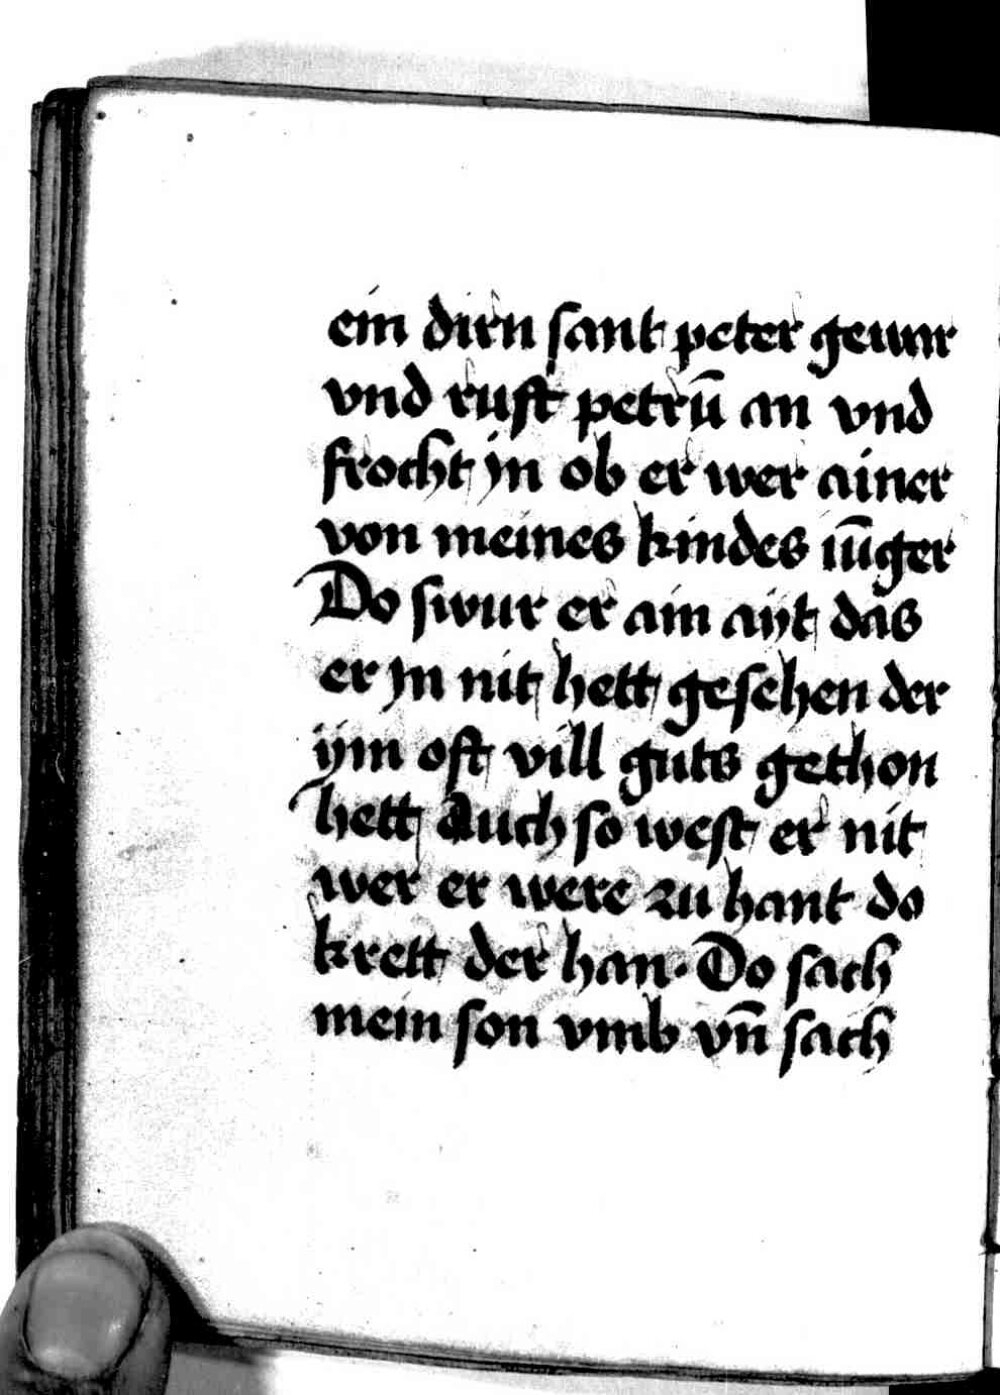 ein dirn sant peter gewar
vnd rüft petrū an vnd
frocht jn ob er wer ainer
von meines kindes iūger
Do swur er ain ayt das
er jn nit hett gesehen der
ÿm oft vill guts gethon
hett Auch so west er nit
wer er were zu hant do
krett der han. Do sach
mein son vmb vn̄ sach